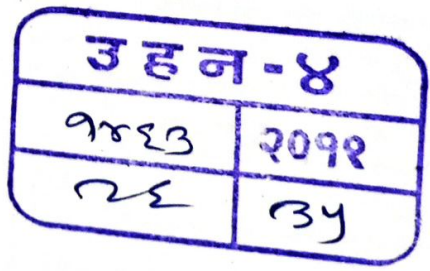 उहन-४
१४६३ २०११
२६ ३५